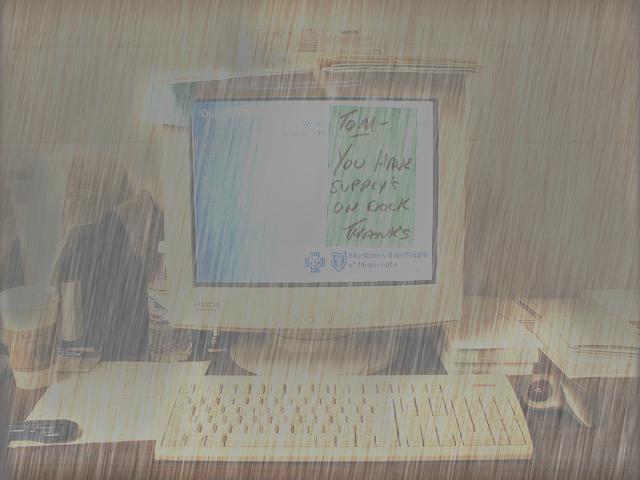 Tom-
You Have
Supply's
on Dock
Thanks
BlueCross BlueShield
of Minnesota
HITACHI